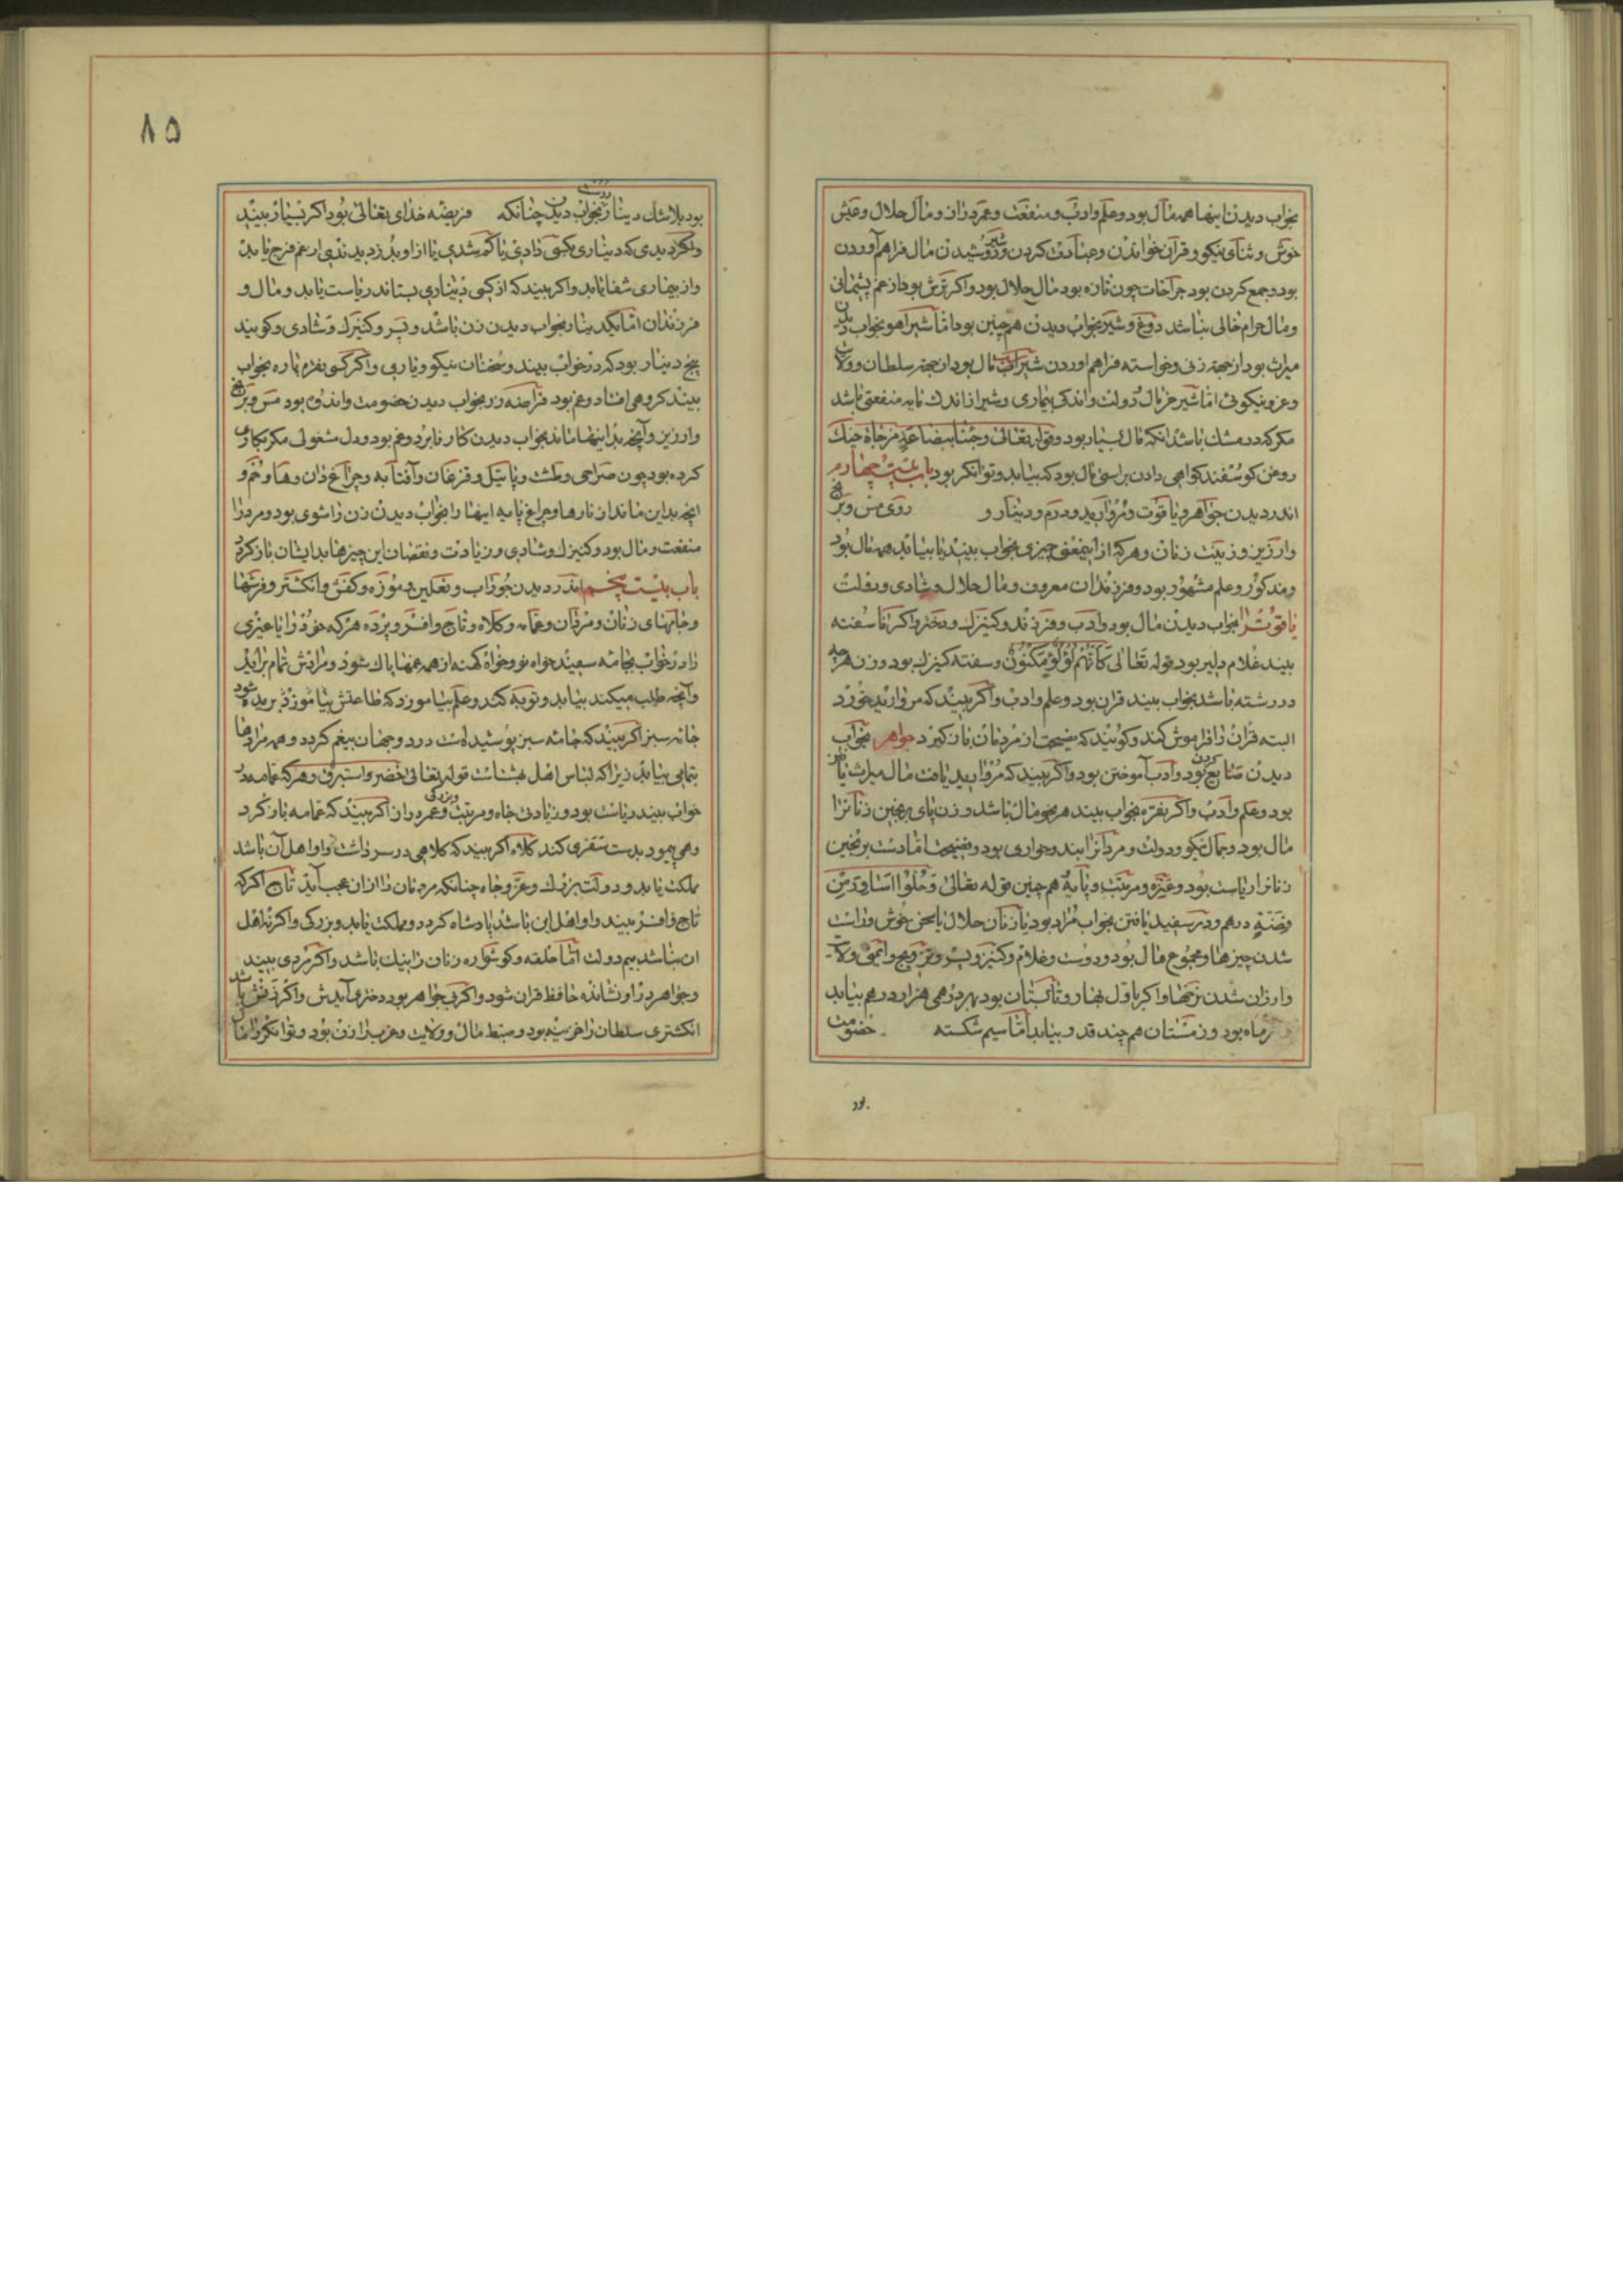 بخواب دیدن اینها همه مال بود و علم و ادب و منفعت و عمر دراز و مال حلال و عیش
خوش و ثنای نیکو و قرآن خواندن و عبادت کردن و دوشیدن شیر مال فراهم آوردن
بود و جمع کردن بود جراحات چون تازه بود مال حلال بود و اکر ترش بود از غم پشیمانی
و مال حرام خالی نباشد دوغ و شیر بخواب دیدن همچنین بود اما شیر آهو بخواب دیدن
میراث بود از جهة زنی و خواسته فراهم اوردن شیر مال بود از جهة سلطان و ولایت
و عز و نیکوئی اما شیر خر مال دولت و اندکی بیماری و شیر از اندک مایه منفعتی باشد
مکر که در مشک باشد انکه مال بسیار بود و قوله تعالی وجئنا ببضاعة مزجاة
روغن کوسفند کواهی دادن براستی مال بود که بیابد و توانکر بود باب بیست چهارم
اندر دیدن جواهر و یاقوت و مروارید و درم و دینار و روی مس و برنج
وارزیز و زینت زنان و هر که از اینمعنی چیزی بخواب بیند یا بیابد همه مال بود
و مذکور و علم مشهور بود و فرزندان معروف و مال حلال و شادی و دولت
یاقوت را بخواب دیدن مال بود و ادب و فرزند و کنیزک و دختر و اکر ناسفته
بیند غلام دلیر بود قوله تعالی کانهم لؤلؤ مکنون و سفته کنیزک بود و زن هرچه
در رشته باشد بخواب بیند قران بود و علم و ادب و اکر بیند که مروارید خورد
البته قران را فراموش کند و کویند که نصیحت از مردمان باز کیرد جواهر بخواب
دیدن صنایع کردن بود و ادب آموختن بود و اکر بیند که مروارید یافت مال میراث یافتن
بود و علم و ادب و اکر نقره بخواب بیند هر نحو مال باشد و زن پای برنجین زنانرا
مال بود و جمال نیکو و دولت و مردانرا بند و خواری بود و فضیحت اما دست برنجین
زنانرا ریاست بود و غیره و مرتبت و پایه همچنین قوله تعالی وحلوا اساور من
فضة درهم و در سفید یافتن بخواب مراد بود یا زنان حلال یا سخن خوش و راست
شدن چیزها و مجموع مال بود و دوست و غلام و کنیز و پسر و تزویج و ایمنی و ولایت
وارزان شدن نرخها و اکر باول بهار و تابستان بود بهر درهمی هزار درهم بیابد
ماه بود و زمستان هم چند قدر بیابد اما سیم شکسته خصومت
بود
۸۵
بود بلا شک دینار درست بخواب دیدن چنانکه فریضه خدای تعالی بود اکر بسیار بیند
و اکر دیدی که دیناری بکسی دادی یا کم شدی یا از او بدزدیدندی از غم فرج یابد
و از بیماری شفا یابد و اکر بیند که از کسی دیناری بستاند ریاست یابد و مال و
فرزندان اما یک دینار بخواب دیدن زن باشد و پسر و کنیزک و شادی و کویند
پنج دینار بود که در خواب بیند و سخنان نیکو و یاری و اکر کسی نقره پاره بخواب
بیند کروهی افتاد و غم بود قراضه زر بخواب دیدن خصومت و اندوه بود مس و برنج
وارزیز و آنچه بدینها ماند بخواب دیدن کار نابرد و غم بود و دل مشغولی مکر بکاری
کرده بود چون صراحی و طشت و پاتیل و قزغان و آفتابه و چراغ دان و هاون و
انچه بداین ماند از نارها و چراغ پایه اینها را بخواب دیدن زن را شوی بود و مرد را
منفعت و مال بود و کنیزک و شادی و زیادت و نقصان این چیزها بدیشان باز کردد
باب بیست پنجم اندر دیدن جوراب و نعلین و موزه و کفش و انکشتر و فرشها
و جامهای زنان و مردان و عمامه و کلاه و تاج و افسر و پرده هر که خود را یا غیری
را در خواب بجامه سپید خواه نو و خواه کهنه از همه غمها پاک شود و مرادش تمام براید
و آنچه طلب میکند بیابد و توبه کند و علم بیاموزد که طاعتش بیاموزد شود
جامه سبز اکر بیند که جامه سبز پوشیده است در دو جهان بیغم کردد و همه مرادها
بتمامی بیابد زیرا که لباس اهل بهشتست قوله تعالی خضر واستبرق و هر که عمامه در
خواب بیند ریاست بود و زیادتی جاه و مرتبت و بزرکی و عمر دراز اکر بیند که عمامه باز کرد
و همی پیمود بدست سفری کند کلاه اکر بیند که کلاهی در سر داشت و او اهل آن باشد
مملکت یابد و دولت بزرک و عز و جاه چنانکه مردمان را از ان عجب آید تاج اکر که
تاج و افسر بیند و او اهل این باشد پادشاه کردد و مملکت یابد و بزرکی و اکر نه اهل
ان باشد بیم دولت اما حلقه و کوشواره زنان را نیک باشد و اکر مردی بیند
و جواهر در او نشانده حافظ قران شود و اکر بی جواهر بود دختری آیدش و اکر نقش باشد
انکشتری سلطان را خزینه بود و ضبط مال و ولایت و عزب را زن بود و توانکر را مال